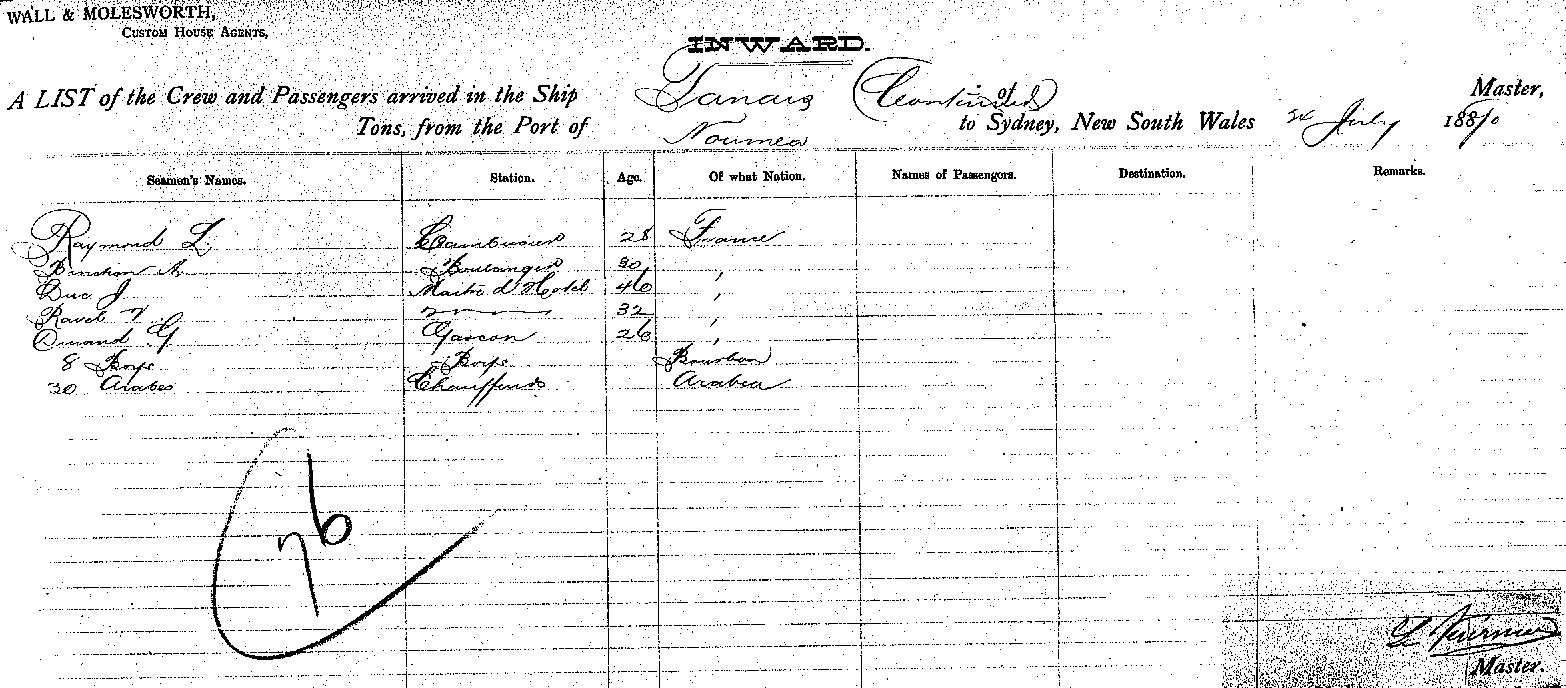 WALL & MOLESWORTH,
CUSTOM HOUSE AGENTS,
INWARD.
A LIST of the Crew and Passengers arrived in the Ship Tanais (Continued) of Master,
Tons, from the Port of Noumea to Sydney, New South Wales July 188
Seamen's Names. Station. Age. Of what Nation. Names of Passengers. Destination. Remarks.
Raymond L. Cambusier 28 France
A. Boulanger 30 "
Duc J Maitre d'Hotel 46 "
Ravel 32 "
G Garcon 26 "
8 Boys Boys Bourbon
30 Arabes Chauffeurs Arabia
76
Master.